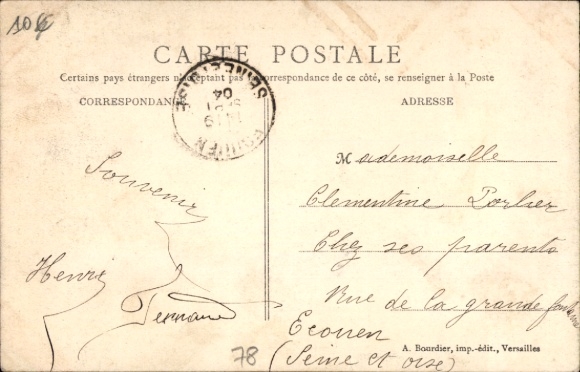 106
CARTE POSTALE
Certains pays étrangers n'acceptant pas la correspondance de ce côté, se renseigner à la Poste
CORRESPONDANCE
ADRESSE
SEINE-ET-OISE
04
Mademoiselle
Souvenir
Clementine Porlier
Chez ses parents
Henri
Fernand
Rue de la grande
Ecouen
A. Bourdier, imp.-édit., Versailles
(Seine et Oise)
78